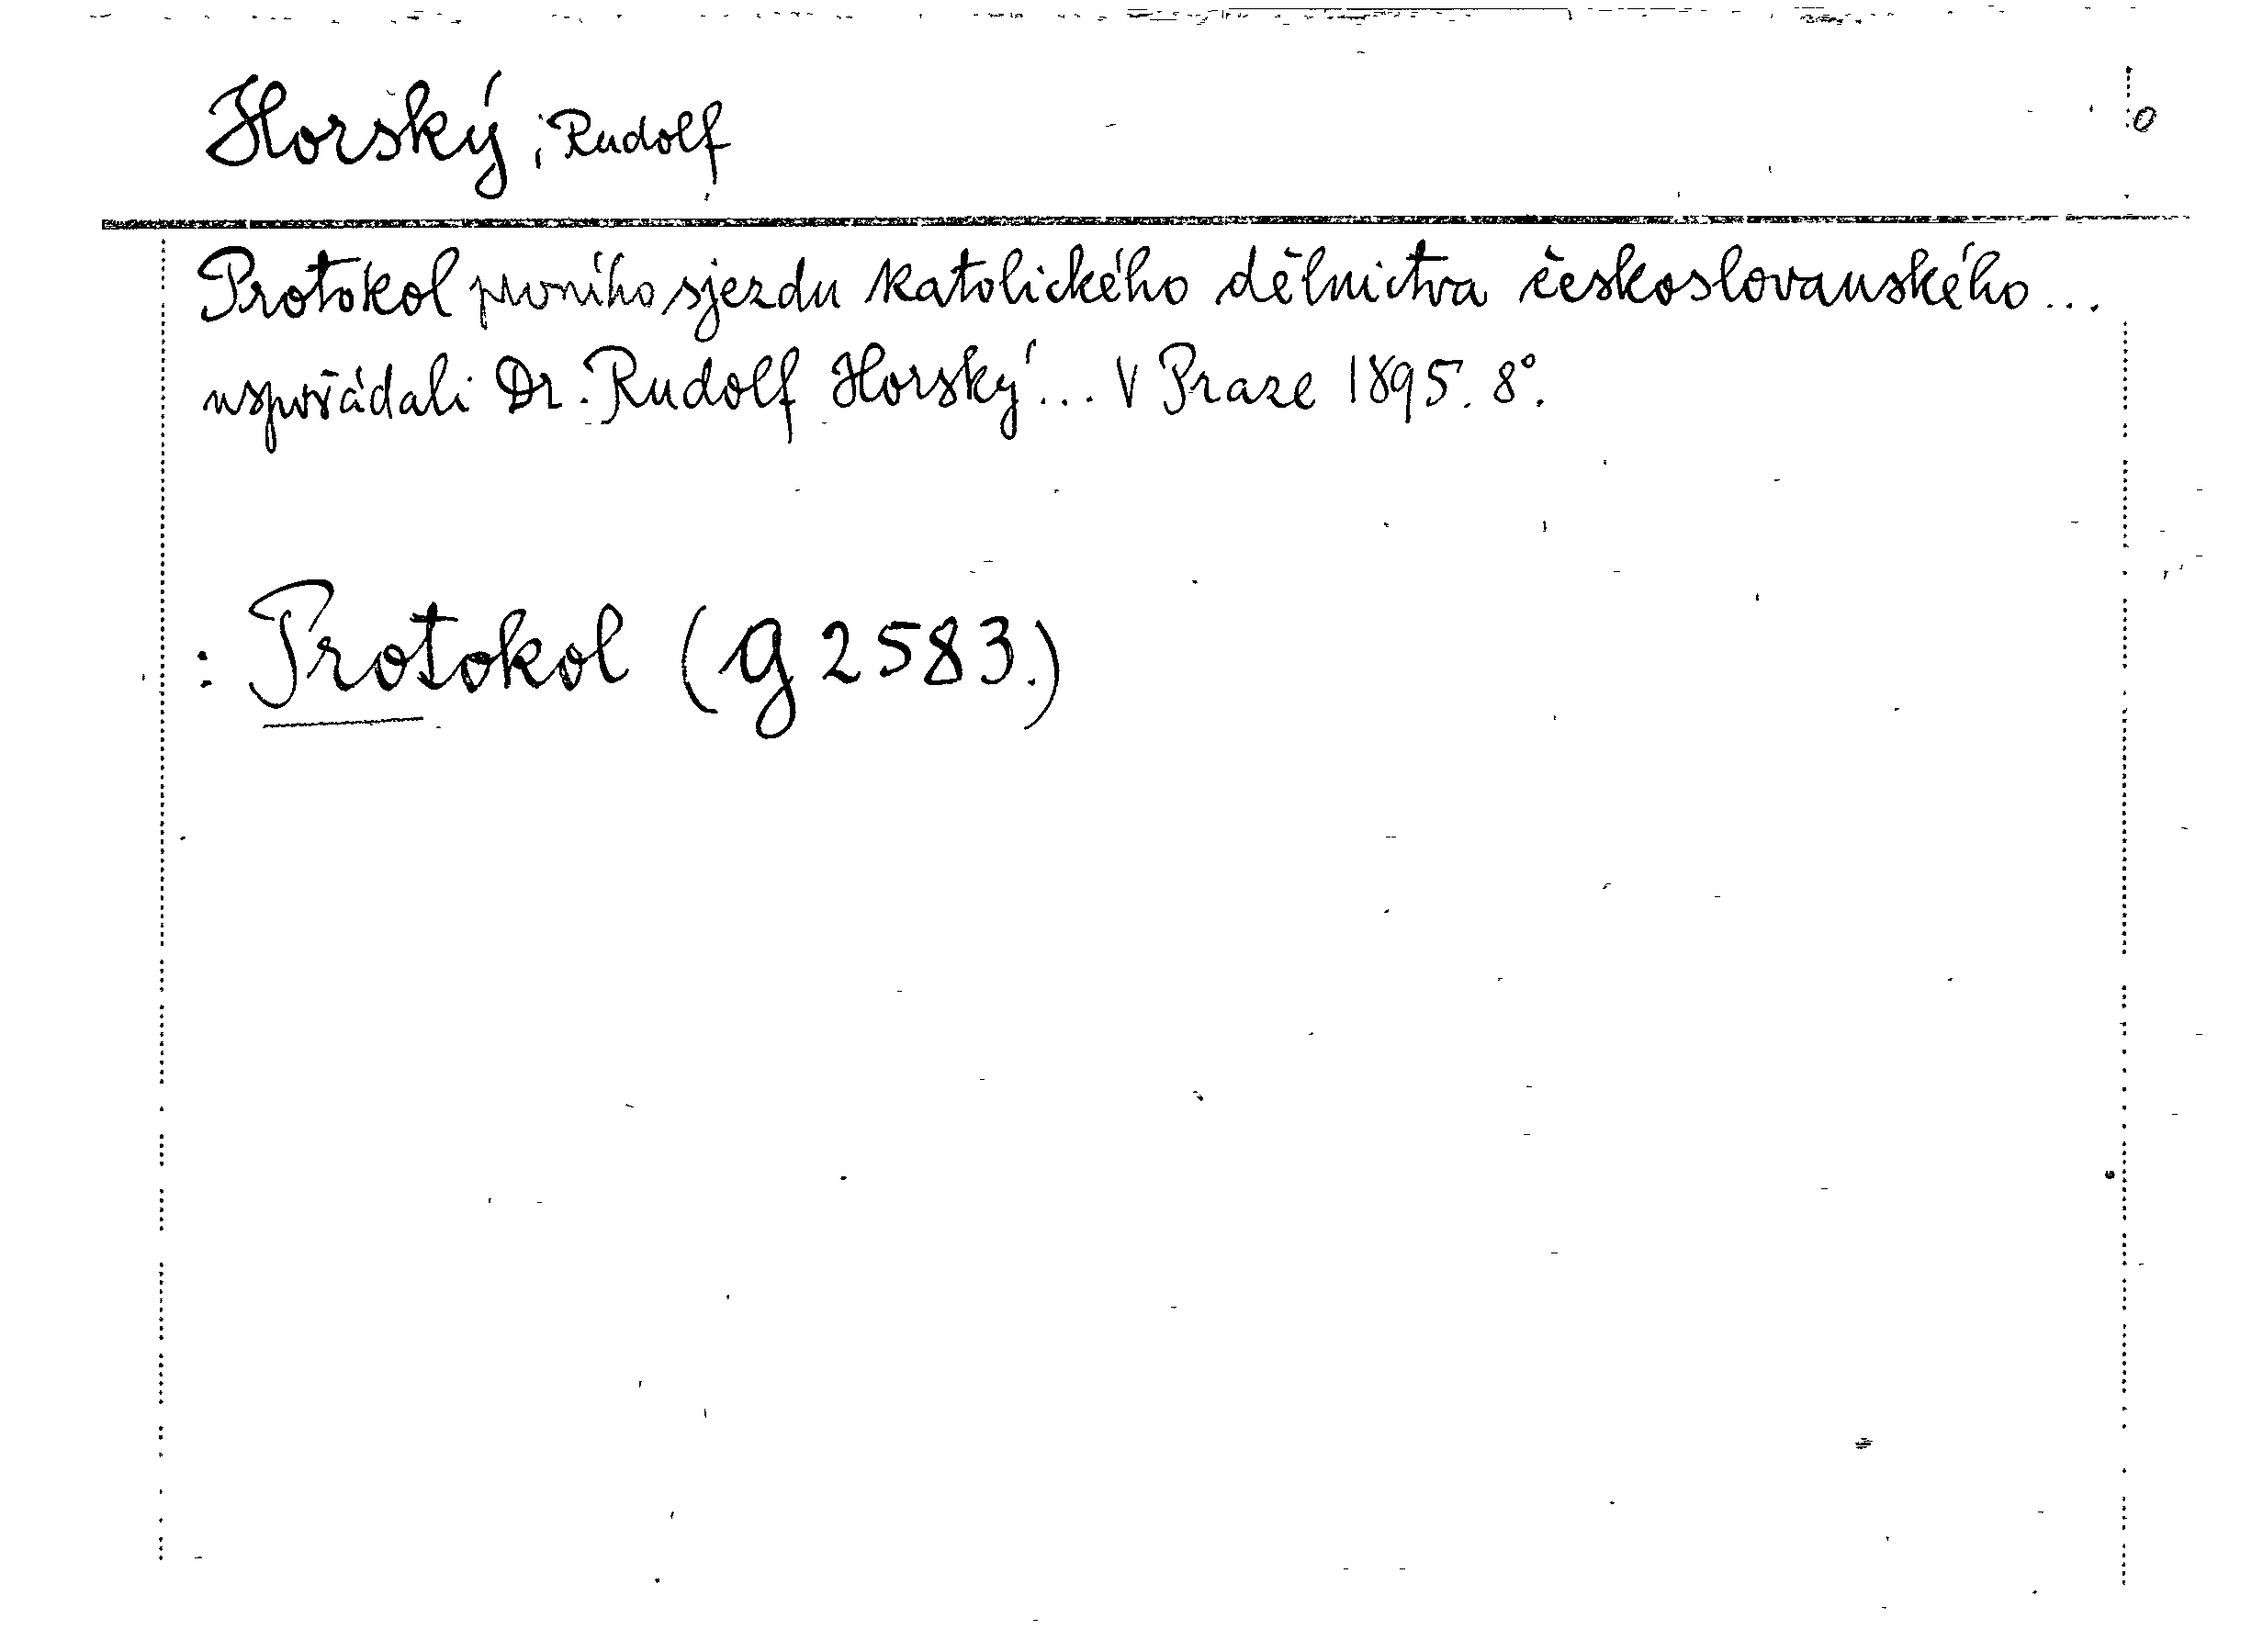 Horský, Rudolf
Protokol prvního sjezdu katolického dělnictva českoslovanského...
uspořádali Dr. Rudolf Horský... V Praze 1895. 8°.
: Protokol (g 2583.)